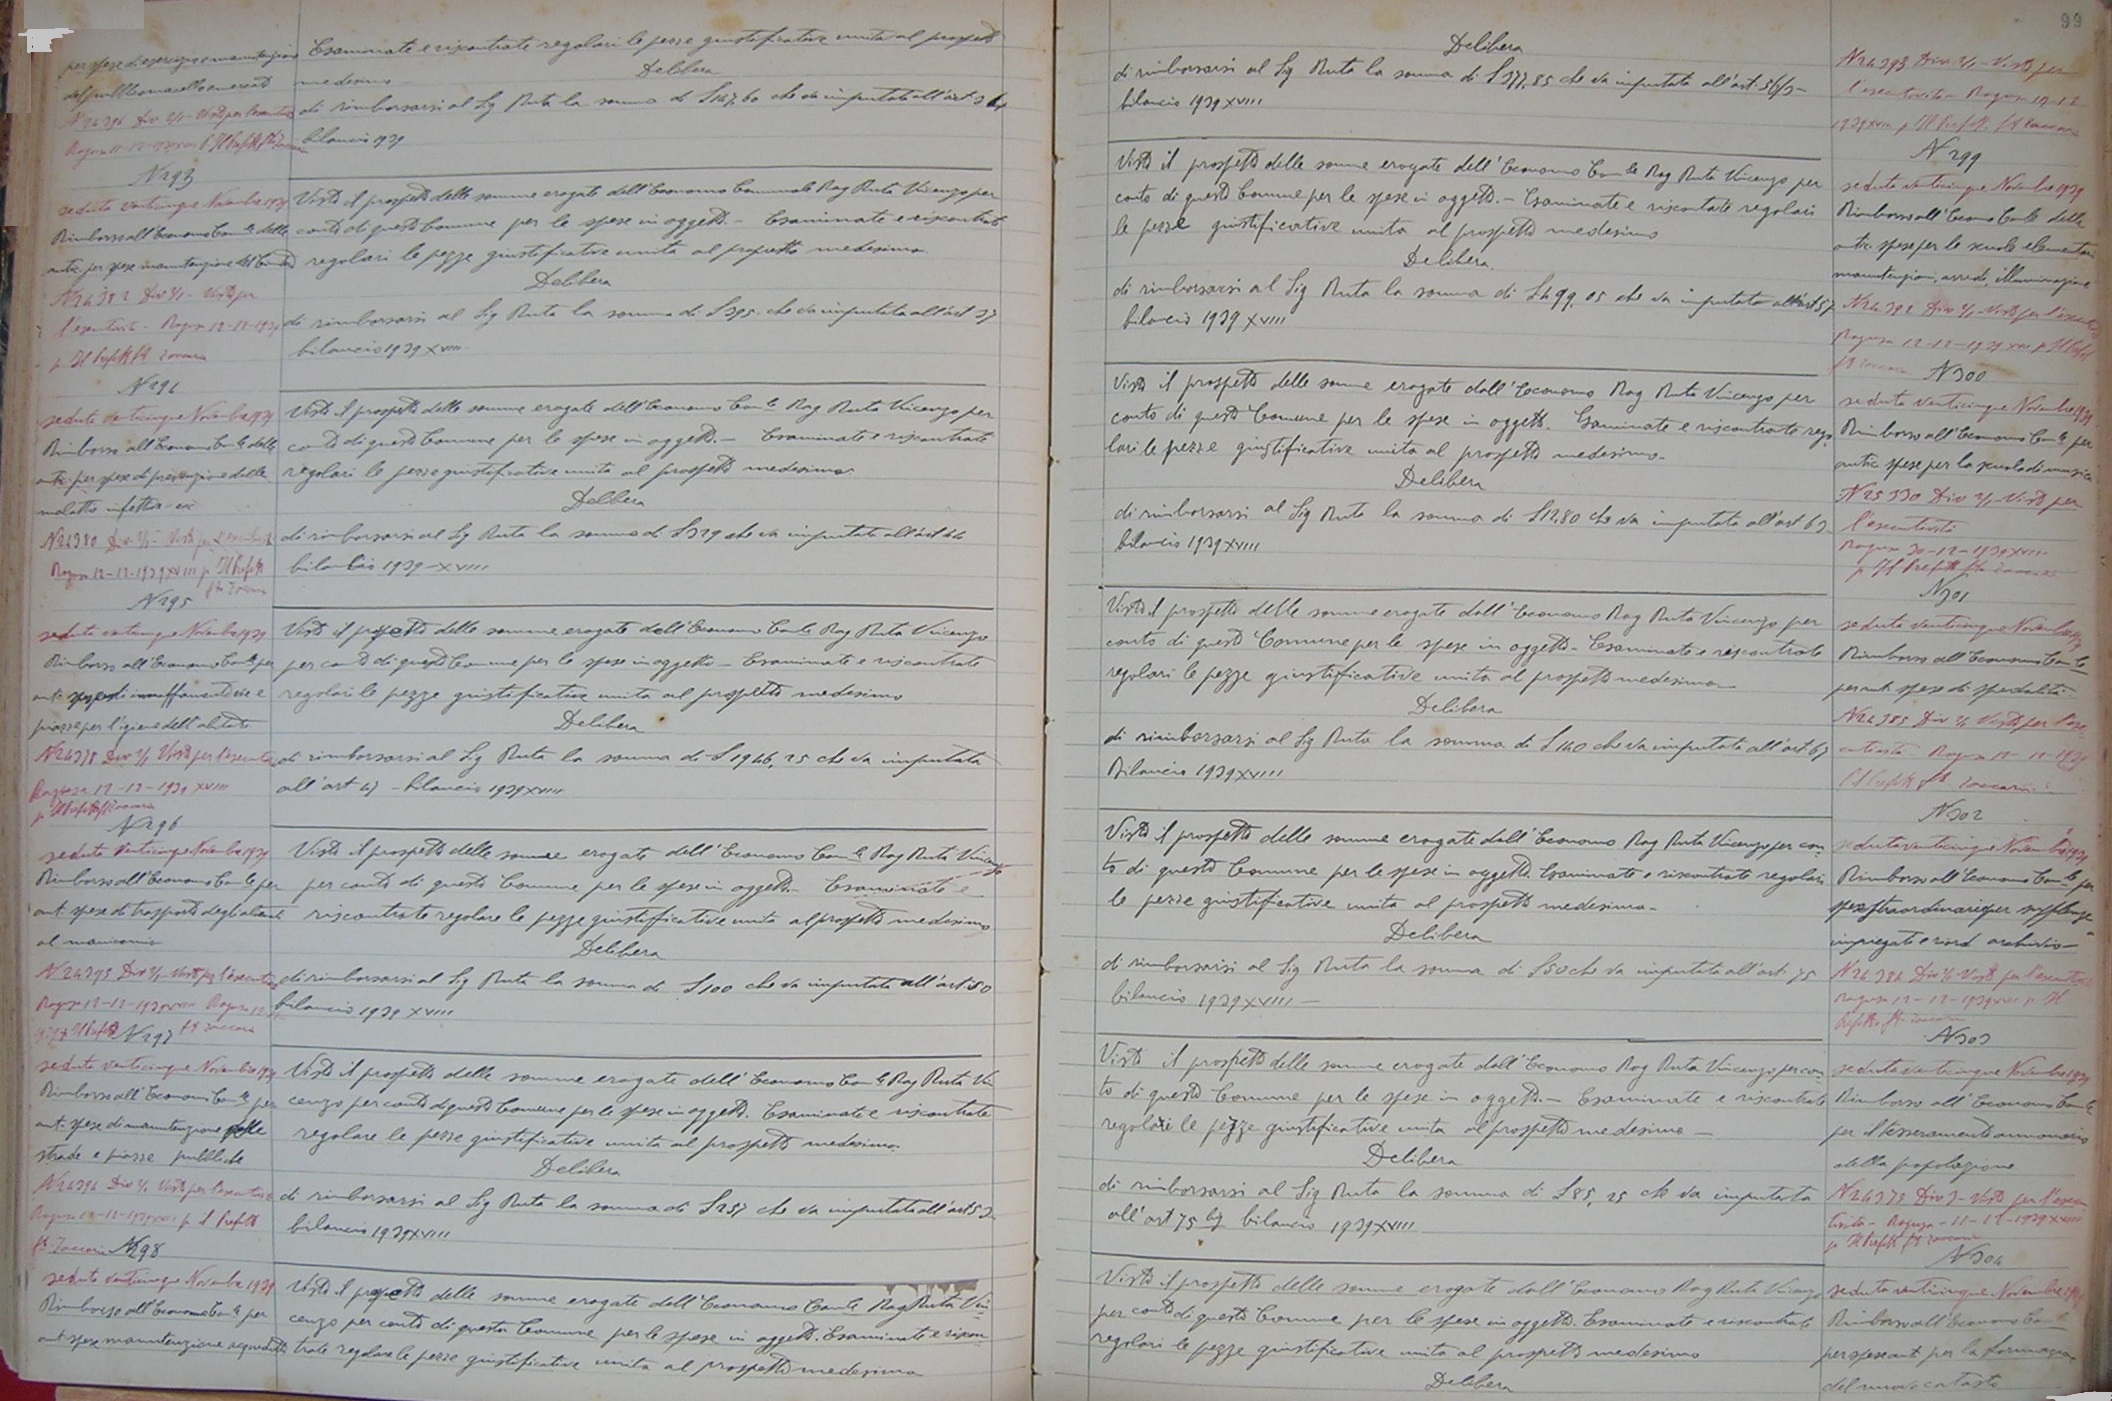 per spese di esercizio e manutenzione
del pubblico macello e mercati
N 24396 Div 2/1 - Visto per l'esecutività
Ragusa 12-12-1939 XVIII p Il Prefetto fto Zaccaria
Esaminate e riscontrate regolari le pezze giustificative unite al prospetto
medesimo
Delibera
di rimborsarsi al Sig Ruta la somma di £ 147,60 che va imputata all'art 36
bilancio 1939
N 293
seduta venticinque Novembre 1939
Rimborso all'Economo Com le delle
antic. per spese manutenzione del
N 24392 Div 2/1 - Visto per
l'esecutività - Ragusa 12-12-1939
p Il Prefetto fto Zaccaria
Visto il prospetto delle somme erogate dall'Economo Comunale Rag Ruta Vincenzo per
conto di questo Comune per le spese in oggetto - Esaminate e riscontrate
regolari le pezze giustificative unite al prospetto medesimo
Delibera
di rimborsarsi al Sig Ruta la somma di £ 395. che va imputata all'art 37
bilancio 1939 XVIII
N 294
seduta venticinque Novembre 1939
Rimborso all'Economo Com le delle
antic. per spese di prevenzione delle
malattie infettive - ecc
N 24380 Div 2/1 - Visto per l'esecutività
Ragusa 12-12-1939 XVIII p Il Prefetto
fto Zaccaria
Visto il prospetto delle somme erogate dall'Economo Com le Rag Ruta Vincenzo per
conto di questo Comune per le spese in oggetto. - Esaminate e riscontrate
regolari le pezze giustificative unite al prospetto medesimo.
Delibera
di rimborsarsi al Sig Ruta la somma di £ 329 che va imputata all'art 44
bilancio 1939 - XVIII
N 295
seduta venticinque Novembre 1939
Rimborso all'Economo Com le per
ant. spese di innaffiamento vie e
piazze per l'igiene dell'abitato
N 24375 Div 2/1 Visto per l'esecutività
Ragusa 12-12-1939 XVIII
p Il Prefetto fto Zaccaria
Visto il prospetto delle somme erogate dall'Economo Com le Rag Ruta Vincenzo
per conto di questo Comune per le spese in oggetto - Esaminate e riscontrate
regolari le pezze giustificative unite al prospetto medesimo
Delibera
di rimborsarsi al Sig Ruta la somma di £ 1946,25 che va imputata
all'art 47 - bilancio 1939 XVIII
N 296
seduta venticinque Novembre 1939
Rimborso all'Economo Com le per
ant. spese di trasporto degli alienati
al manicomio
N 24395 Div 2/1 - Visto per l'esecutività
Ragusa 12-12-1939 XVIII
p Il Prefetto fto Zaccaria
Visto il prospetto delle somme erogate dall'Economo Com le Rag Ruta Vincenzo
per conto di questo Comune per le spese in oggetto - Esaminate e
riscontrate regolare le pezze giustificative unite al prospetto medesimo
Delibera
di rimborsarsi al Sig Ruta la somma di £ 100 che va imputata all'art 50
bilancio 1939 XVIII
N 297
seduta venticinque Novembre 1939
Rimborso all'Economo Com le per
ant. spese di manutenzione delle
strade e piazze pubbliche
N 24394 Div 2/1 Visto per l'esecutività
Ragusa 12-12-1939 XVIII p Il Prefetto
fto Zaccaria
Visto il prospetto delle somme erogate dall'Economo Com le Rag Ruta Vin
cenzo per conto di questo Comune per le spese in oggetto. Esaminate e riscontrate
regolare le pezze giustificative unite al prospetto medesimo.
Delibera
di rimborsarsi al Sig Ruta la somma di £ 257 che va imputata all'art 53
bilancio 1939 XVIII
N 298
seduta venticinque Novembre 1939
Rimborso all'Economo Com le per
ant. spese manutenzione acquedotto
Visto il prospetto delle somme erogate dall'Economo Com le Rag Ruta Vin
cenzo per conto di questo Comune per le spese in oggetto. Esaminate e riscon
trate regolare le pezze giustificative unite al prospetto medesimo
99
Delibera
di rimborsarsi al Sig Ruta la somma di £ 377,85 che va imputata all'art. 56/3 -
bilancio 1939 XVIII
N 24393 Div 2/1 - Visto per
l'esecutività - Ragusa 12-12-
1939 XVIII p Il Prefetto fto Zaccaria
N 299
seduta venticinque Novembre 1939
Rimborso all'Economo Com le delle
antic. spese per le scuole elementari
manutenzioni, arredi, illuminazione
N 24392 Div 2/1 - Visto per l'esecutività
Ragusa 12-12-1939 XVIII p Il Prefetto
fto Zaccaria
Visto il prospetto delle somme erogate dall'Economo Com le Rag Ruta Vincenzo per
conto di questo Comune per le spese in oggetto. - Esaminate e riscontrate regolari
le pezze giustificative unite al prospetto medesimo
Delibera.
di rimborsarsi al Sig Ruta la somma di £ 499,05 che va imputata all'art 57
bilancio 1939 XVIII
N 300
seduta venticinque Novembre 1939
Rimborso all'Economo Com le per
antic. spese per la scuola di musica
N 25330 Div 2/1 - Visto per
l'esecutività
Ragusa 30-12-1939 XVIII
p Il Prefetto fto Zaccaria
Visto il prospetto delle somme erogate dall'Economo Rag Ruta Vincenzo per
conto di questo Comune per le spese in oggetto. Esaminate e riscontrate rego
lari le pezze giustificative unite al prospetto medesimo -
Delibera
di rimborsarsi al Sig Ruta la somma di £ 12,80 che va imputata all'art 63
bilancio 1939 XVIII
N 301
seduta venticinque Novembre 1939
Rimborso all'Economo Com le
per ant. spese di spedalità
N 24385 Div 2/1 Visto per l'ese
cutività Ragusa 12-12-1939
p Il Prefetto fto Zaccaria
Visto il prospetto delle somme erogate dall'Economo Rag Ruta Vincenzo per
conto di questo Comune per le spese in oggetto - Esaminate e riscontrate
regolari le pezze giustificative unite al prospetto medesimo
Delibera
di rimborsarsi al Sig Ruta la somma di £ 140 che va imputata all'art 67
Bilancio 1939 XVIII
N 302
seduta venticinque Novembre 1939
Rimborso all'Economo Com le per
spese straordinarie per supplenze
impiegati e riord archivio -
N 24384 Div 2/1 Visto per l'esecutività
Ragusa 12-12-1939 XVIII p Il
Prefetto fto Zaccaria
Visto il prospetto delle somme erogate dall'Economo Rag Ruta Vincenzo per con
to di questo Comune per le spese in oggetto. Esaminate e riscontrate regolari
le pezze giustificative unite al prospetto medesimo -
Delibera
di rimborsarsi al Sig Ruta la somma di £ 50 che va imputata all'art 75
bilancio 1939 XVIII -
N 303
seduta venticinque Novembre 1939
Rimborso all'Economo Com le
per il tesseramento annonario
della popolazione
N 24373 Div 2 - Visto per l'esecu
tività - Ragusa - 12-12-1939 XVIII
p Il Prefetto fto Zaccaria
Visto il prospetto delle somme erogate dall'Economo Rag Ruta Vincenzo per con
to di questo Comune per le spese in oggetto - Esaminate e riscontrate
regolari le pezze giustificative unite al prospetto medesimo -
Delibera
di rimborsarsi al Sig Ruta la somma di £ 85,25 che va imputata
all'art 75 bis bilancio 1939 XVIII
N 304
seduta venticinque Novembre 1939
Rimborso all'Economo Com le
per spese ant. per la formazione
del nuovo catasto
Visto il prospetto delle somme erogate dall'Economo Rag Ruta Vincenzo
per conto di questo Comune per le spese in oggetto. Esaminate e riscontrate
regolari le pezze giustificative unite al prospetto medesimo
Delibera